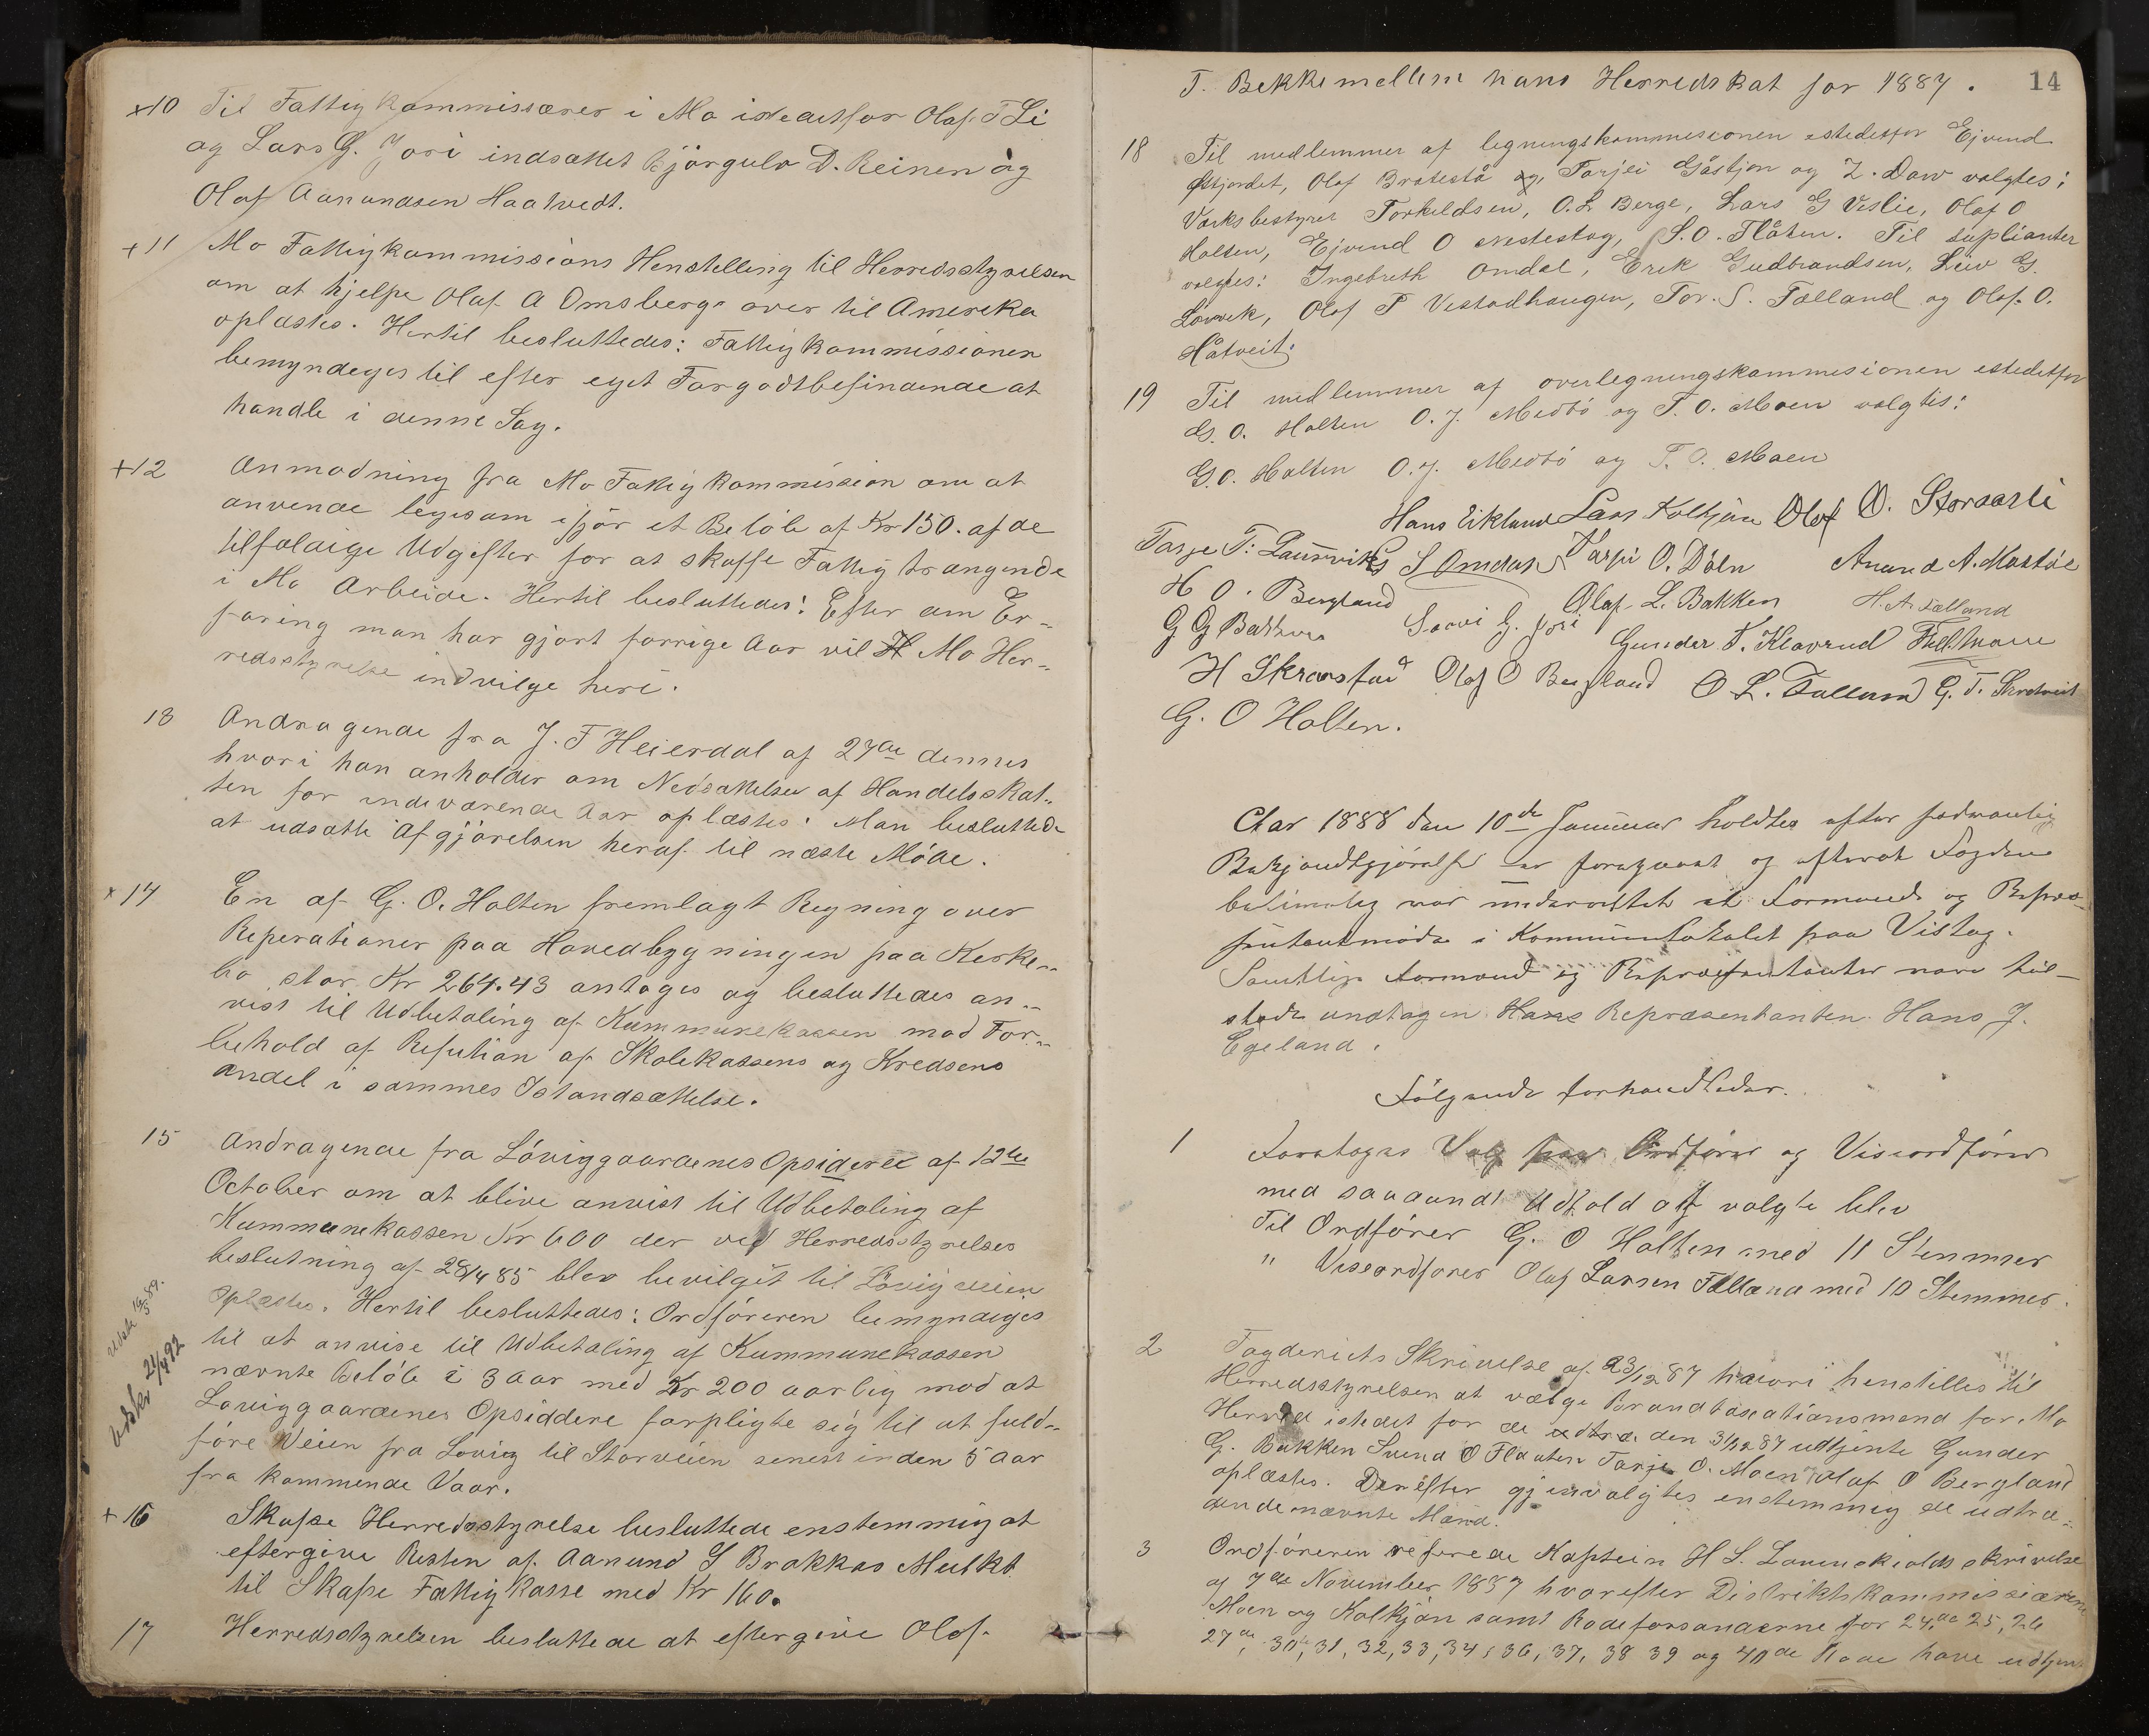 +10 Til Fattigkommissærer i Mo istedetfor Olaf T Li
og Lars G. Jori indsattet Bjørgulv D. Reinen og
Olaf Aanundsen Haatvedt.
+11 Mo Fattigkommissions Henstilling til Herredsstyrelsen
om at hjelpe Olaf A Omsberge over til Amerika
oplæstes. Hertil besluttedes: Fattigkommissionen
bemyndeges til efter eget Forgodtbefindende at
handle i denne Sag.
+12 Anmodning fra Mo Fattigkommission om at
anvende ligesom ifjór et Belób af Kr 150. af de
tilfældige Udgifter for at skaffe Fattigtrængende
i Mo Arbeide. Hertil besluttedes: Efter den Er-
faring man har gjort forrige Aar vil H Mo Her-
redsstyrelse indvilge heri.
13 Andragende fra J. T Heierdal af 27de dennes
hvori han anholder om Nedsættelse af Handelsskat-
ten for indeværende Aar oplæstes. Man besluttede
at udsætte Afgjórelsen heraf til næste Móde.
x 14 En af G. O. Holten fremlagt Regning over
Reperationer paa Hovedbygningen paa Kerke-
bo stor Kr 264.43 antoges og besluttedes an-
vist til Udbetaling af Kommunekassen mod For-
behold af Refution af Skolekassens og Kredsens
Andel i sammes Istandsættelse.
15 Andragende fra Lóviggaardenes Opsidere af 12te
October om at blive anvist til Udbetaling af
Kommunekassen Kr 600 der ved Herredsstyrelses
beslutning af 28/4 85 blev bevilget til Lóvigveien
oplæstes. Hertil besluttedes: Ordfóreren bemyndiges
til at anvise til Udbetaling af Kommunekassen
nævnte Belób i 3 Aar med Kr 200 aarlig mod at
Loviggaardenes Opsiddere forpligte sig til at fuld-
fóre Veien fra Lovig til Storveien senest inden 5 Aar
fra kommende Vaar.
+ 16 Skafse Herredsstyrelse besluttede enstemmig at
eftergive Resten af Aanund S Brokkas Mulkt
til Skafse Fattigkasse med Kr 160.
17 Herredsstyrelsen besluttede at eftergive Olaf
14
T. Bekkemellem hans Herredskat for 1887.
18 Til medlemmer af legningskommissionen istedetfor Ejvind
Østjordet, Olaf Bratestå og, Tarjei Gåstjon og Z. Daw valgtes:
Værksbestyrer Torkildsen, O.L Berge, Lars G Veslie, Olaf O
Holten, Ejvind O Midtestog, S.O. Flåten. Til suplianter
valgtes: Ingebreth Omdal, Erik Gudbrandsen, Leiv G.
Lovvik, Olaf P Vestadhaugen, Tor. S. Fælland og Olaf. O.
Håtveit.
19 Til medlemmer af overlegningskommisionen istedetfor
G. O. Holten O. J. Medbó og T. O. Moen valgtes:
G. O. Holten O. J. Medbó og T. O. Moen
Hans Eikland Lars Kolkjøn Olof O. Storaasli
Tarje T. S Omdal Tarjei O. Dóln Anund A.
H O. Bergland Olaf L. Bakken H. A. Fælland
G G Bakken G. Jori Gunder T. Klovrud
H Skranstad Olof O Bergland O L. Fælland G. T.
G. O Holten.
Aar 1888 den 10de Januar holdtes efter sædvanlig
Bekjendtgjórelse var foregaaet og efterat Fogden
betimelig var underrettet et Formands og Repræ-
sentantmóde i Kommunelokalet paa Vistog.
Samtlige Formænd og Repræsentanter vare til-
stede undtagen Hans Repræsentanten Hans J.
Egeland.
Fólgende forhandledes.
1 Foretoges Valg paa Ordfórer og Viseordfórer
med saadandt Udfald at valgte blev
Til Ordfórer G. O Holten med 11 Stemmer
" Viseordfører Olaf Larsen Fælland med 10 Stemmer.
2 Fogderiets Skrivelse af 23/12 87 hvori henstilles til
Herredsstyrelsen at vælge Brandtaxationsmænd for Mo
Herred istedet for de udtræ den 31/12 87 udtjente Gunder
G. Bakken Svend O Flaaten Tarje O. Moen Olaf O Bergland
oplæstes. Derefter gjenvalgtes enstemmig de udtræ-
dende nævnte Mænd.
3 Ordfóreren refererede Kaptein H S. Lovenskiolds skrivelse
af 7de November 1887 hvorefter Distriktskommissiærerne
Moen og Kolkjón samt Rodeforstanderne for 24de 25, 26
27de, 30te, 31, 32, 33, 34, 36, 37, 38 39 og 40de Rode have udtjent